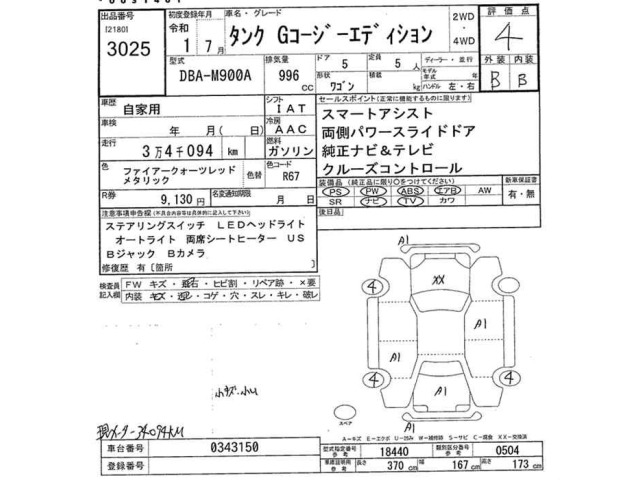 出品番号 初度登録年月 車名・グレード 2WD 評価点
[2180] 令和 1年 7月 タンク Gコージーエディション ・4WD 4
3025
型式 排気量 ドア 定員 ディーラー・並行 外装 内装
DBA-M900A 996cc 5 5人 モデル年式 年 B B
形状 ワゴン 積載 kg ハンドル 左・右
車歴 自家用 シフト IAT セールスポイント(正常に機能するものに限ります)
車検 年 月(日) 冷房 AAC スマートアシスト
両側パワースライドドア
走行 3万4千094km 燃料 ガソリン 純正ナビ&テレビ
クルーズコントロール
色 ファイアークォーツレッドメタリック 色替 色コード R67 装備品(純正品に限り○をつけてください) 新車保証書
PS PW ABS エアB AW 有・無
R券 9,130円 名変通知期限 月 日 SR ナビ TV カワ
注意事項申告欄(不具合内容等は具体的に記入して下さい) 後日品
ステアリングスイッチ LEDヘッドライト
オートライト 両席シートヒーター US
Bジャック Bカメラ
修復歴 有[箇所 ]
検査員記入欄 FW キズ・飛石・ヒビ割・リペア跡・×要
内装 キズ・汚レ・コゲ・穴・スレ・キレ・破レ
A1
XX
4
A1
A1
A1
4
4
A1
スペア
現メーター34094KM
A-キズ E-エクボ U-凹み W-補修跡 S-サビ C-腐食 XX-交換済
車台番号 0343150 型式指定番号 参考 18440 類別区分番号 参考 0504
登録番号 車庫証明用 参考 長さ 370cm 幅 167cm 高さ 173cm